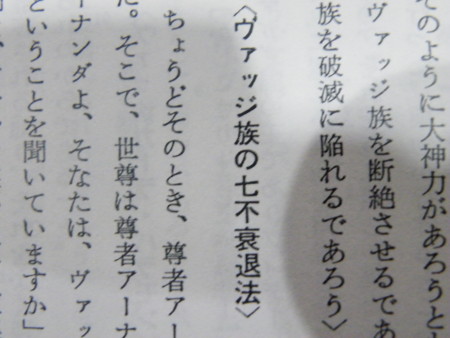 そのように大神力があろうと
ヴァッジ族を断絶させるであ
族を破滅に陥れるであろう〉
〈ヴァッジ族の七不衰退法〉
ちょうどそのとき、尊者アー
た。そこで、世尊は尊者アーナ
ーナンダよ、そなたは、ヴァッ
ということを聞いていますか」